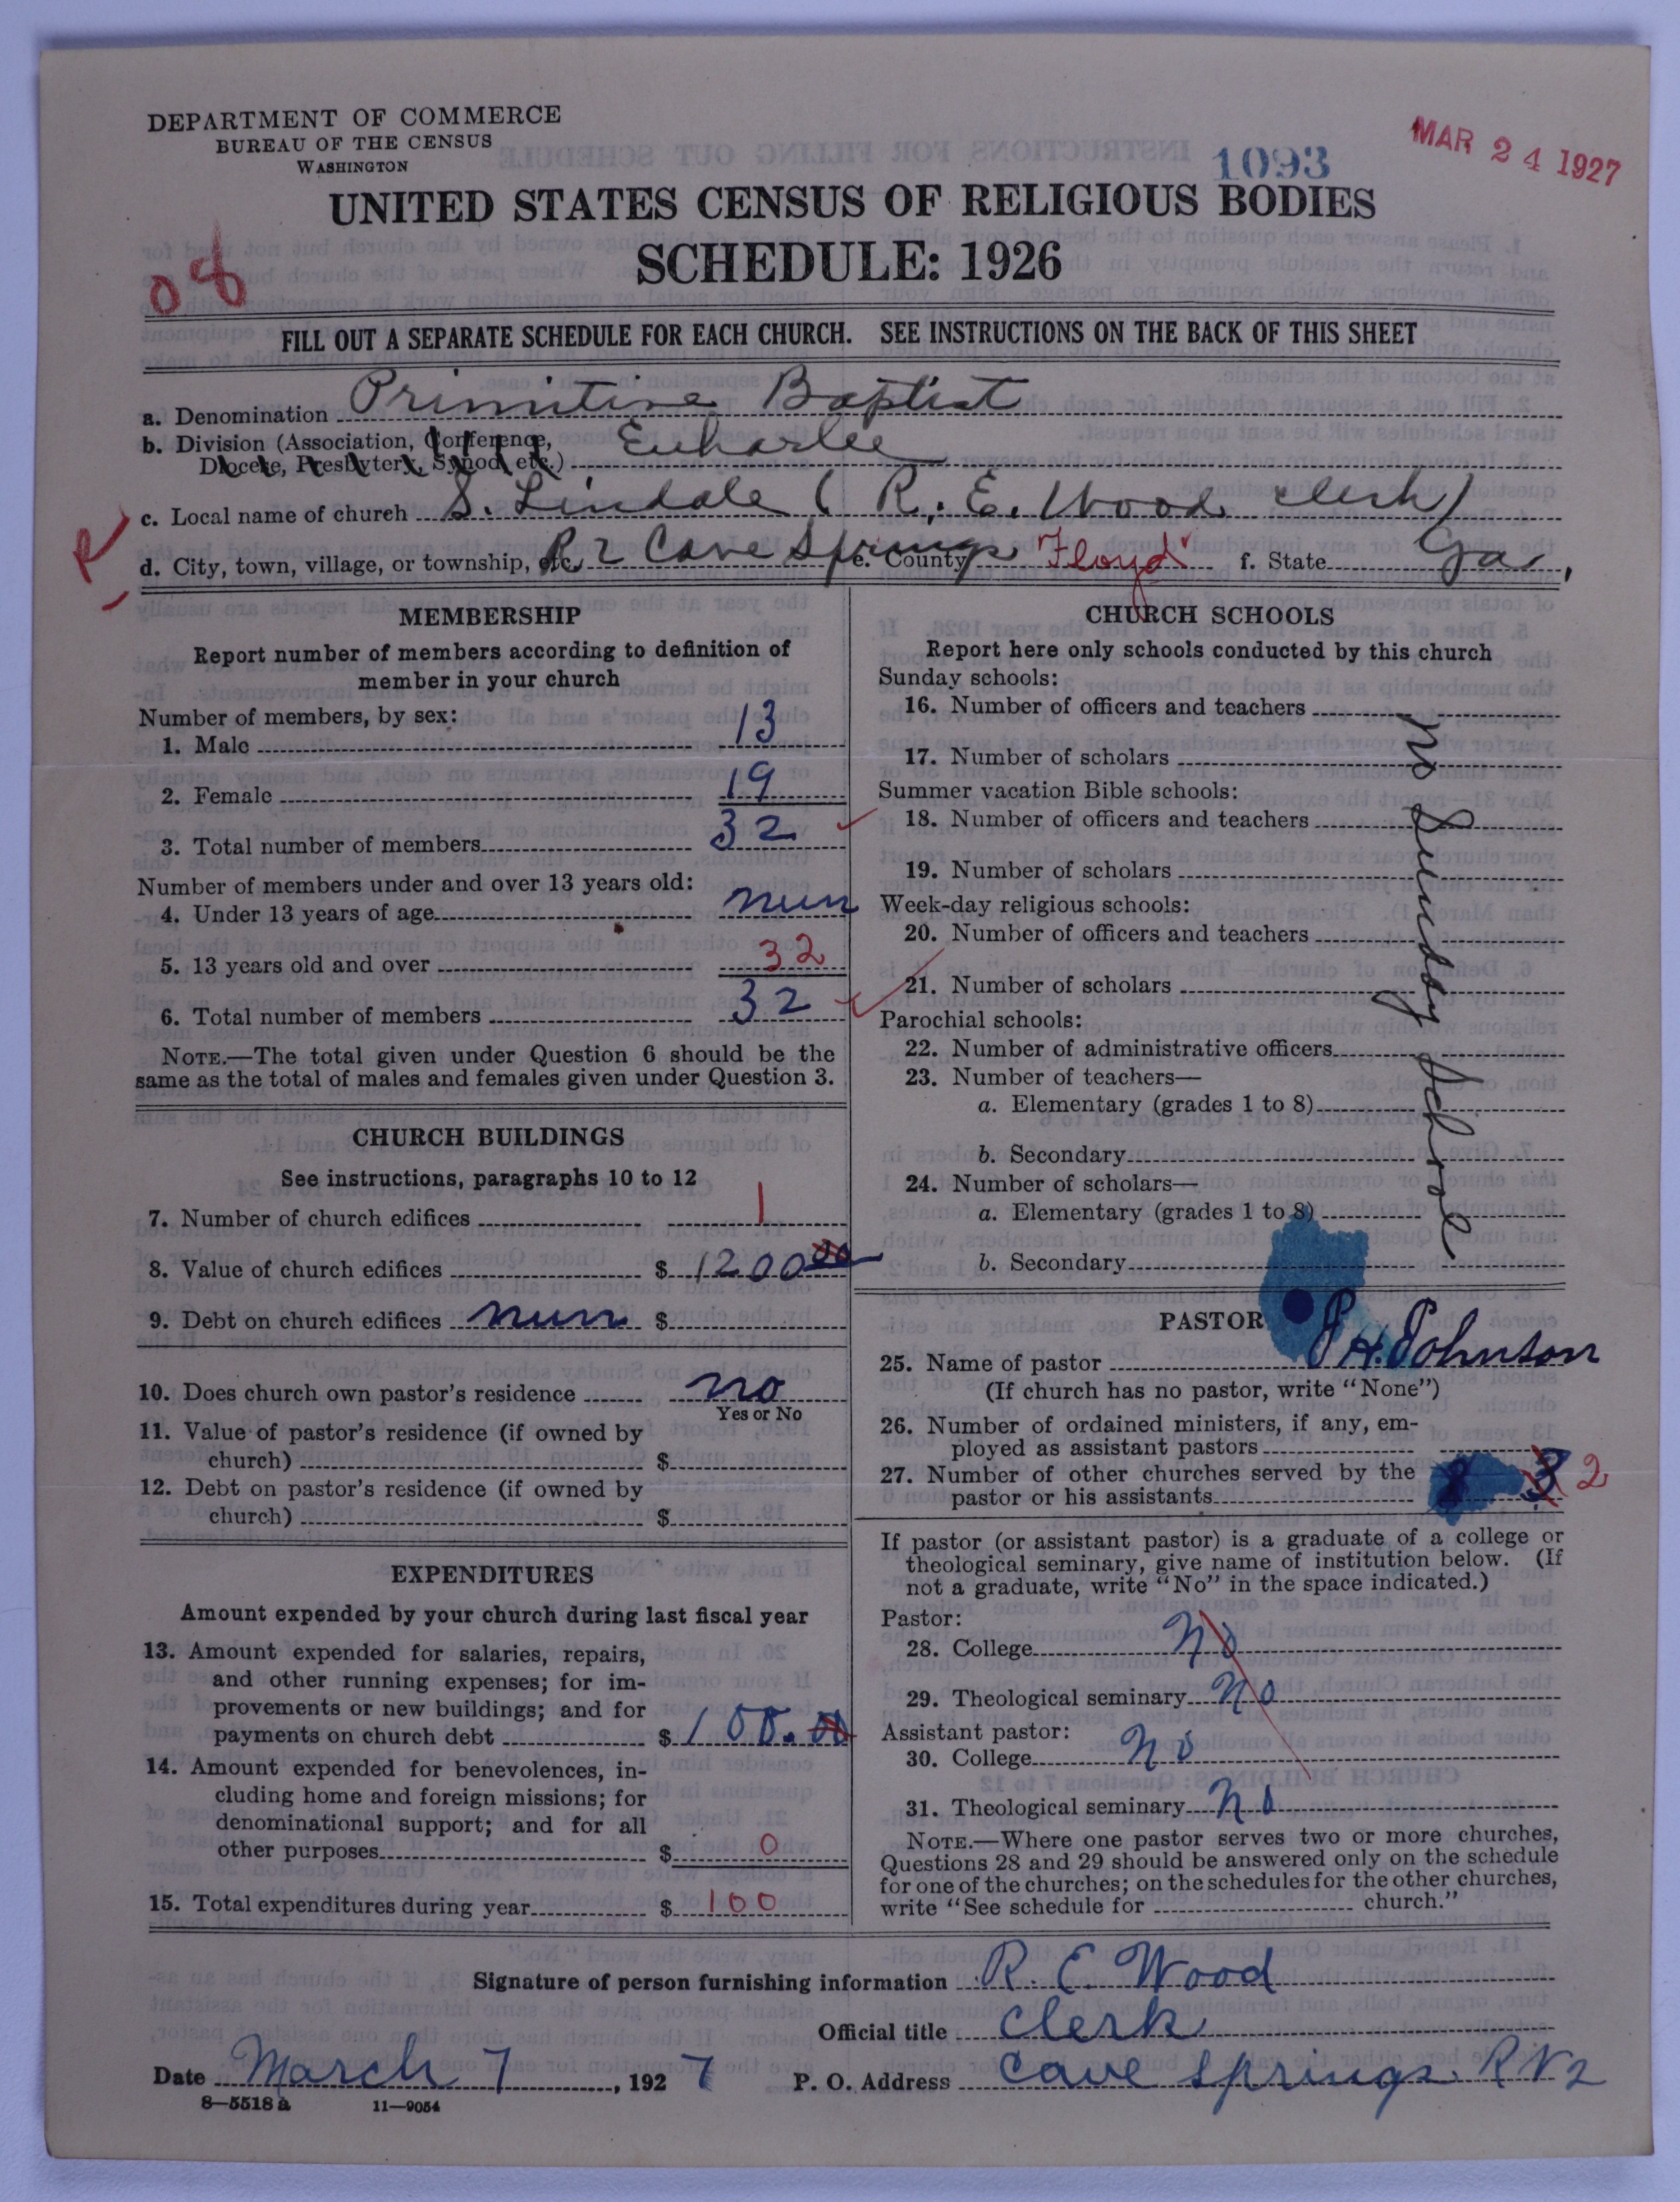 DEPARTMENT OF COMMERCE
BUREAU OF THE CENSUS
WASHINGTON
1093
MAR 24 1927
UNITED STATES CENSUS OF RELIGIOUS BODIES
SCHEDULE: 1926
08
FILL OUT A SEPARATE SCHEDULE FOR EACH CHURCH. SEE INSTRUCTIONS ON THE BACK OF THIS SHEET
a. Denomination Primitive Baptist
b. Division (Association, Conference, Euharlee
Diocese, Presbytery, Synod, etc.)
c. Local name of church S. Lindale ( R. E. Wood clerk)
R
d. City, town, village, or township, etc. R 2 Cave Springs e. County Floyd f. State Ga.
MEMBERSHIP
Report number of members according to definition of
member in your church
Number of members, by sex:
1. Male 13
2. Female 19
3. Total number of members 32
Number of members under and over 13 years old:
4. Under 13 years of age nun
5. 13 years old and over 32
6. Total number of members 32
NOTE.—The total given under Question 6 should be the
same as the total of males and females given under Question 3.
CHURCH BUILDINGS
See instructions, paragraphs 10 to 12
7. Number of church edifices 1
8. Value of church edifices $ 1200 00
9. Debt on church edifices nun $
10. Does church own pastor's residence no
Yes or No
11. Value of pastor's residence (if owned by
church) $
12. Debt on pastor's residence (if owned by
church) $
EXPENDITURES
Amount expended by your church during last fiscal year
13. Amount expended for salaries, repairs,
and other running expenses; for im-
provements or new buildings; and for
payments on church debt $ 100.00
14. Amount expended for benevolences, in-
cluding home and foreign missions; for
denominational support; and for all
other purposes $ 0
15. Total expenditures during year $ 100
CHURCH SCHOOLS
Report here only schools conducted by this church
Sunday schools:
16. Number of officers and teachers
17. Number of scholars
Summer vacation Bible schools:
18. Number of officers and teachers
19. Number of scholars
Week-day religious schools:
20. Number of officers and teachers
21. Number of scholars
Parochial schools:
22. Number of administrative officers
23. Number of teachers—
a. Elementary (grades 1 to 8)
b. Secondary
24. Number of scholars—
a. Elementary (grades 1 to 8)
b. Secondary
no Sunday School
PASTOR
25. Name of pastor J H. Johnson
(If church has no pastor, write "None")
26. Number of ordained ministers, if any, em-
ployed as assistant pastors
27. Number of other churches served by the
pastor or his assistants 3 2
If pastor (or assistant pastor) is a graduate of a college or
theological seminary, give name of institution below. (If
not a graduate, write "No" in the space indicated.)
Pastor:
28. College No
29. Theological seminary No
Assistant pastor:
30. College No
31. Theological seminary No
NOTE.—Where one pastor serves two or more churches,
Questions 28 and 29 should be answered only on the schedule
for one of the churches; on the schedules for the other churches,
write "See schedule for church."
Signature of person furnishing information R. E. Wood
Official title Clerk
Date March 7, 1927 P. O. Address Cave Springs R N 2
8—5518 a 11—9054